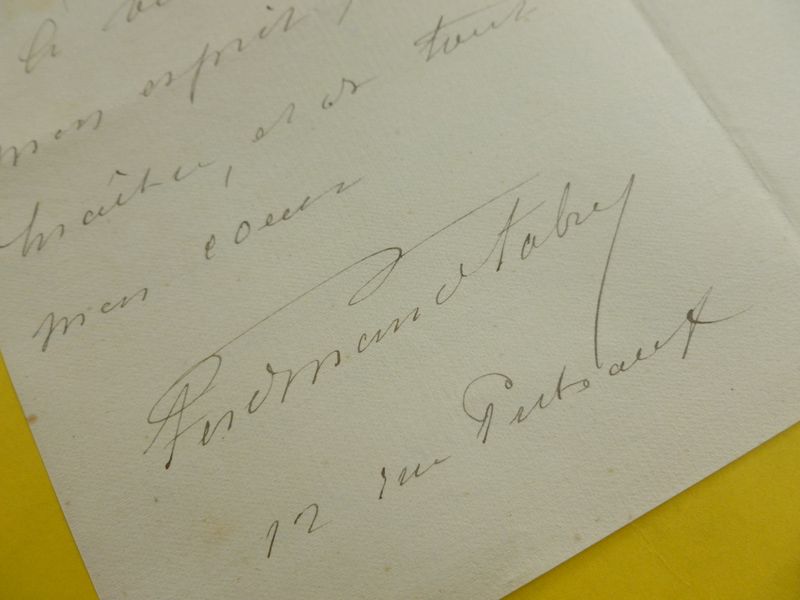 mon esprit,
maître, et de tout
mon coeur
Ferdinand Fabre
12 rue Puteaux